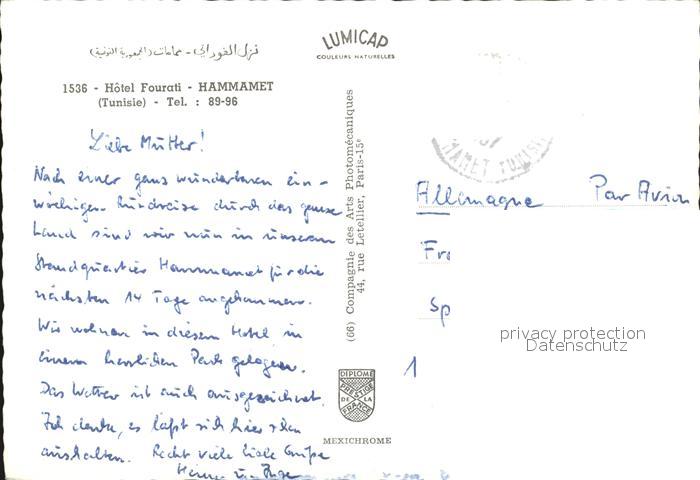 نزل الفوراتي - حمامات (الجمهورية التونسية)
1536 - Hôtel Fourati - HAMMAMET
(Tunisie) - Tel. : 89-96
Liebe Mutter!
Nach einer ganz wunderbaren ein-
wöchigen Rundreise durch das ganze
Land sind wir nun in unserem
Standquartier Hammamet für die
nächsten 14 Tage angekommen.
Wir wohnen in diesem Hotel in
einem herrlichen Park gelegen.
Das Wetter ist auch ausgezeichnet.
Ich denke, es läßt sich hier schon
aushalten. Recht viele liebe Grüße
LUMICAP
COULEURS NATURELLES
(66) Compagnie des Arts Photomécaniques
44, rue Letellier, Paris-15e
DIPLOME
PRESTIGE
DE LA
FRANCE
MEXICHROME
HAMMAMET TUNISIE
Allemagne Par Avion
Fr
Sp
1
privacy protection
Datenschutz